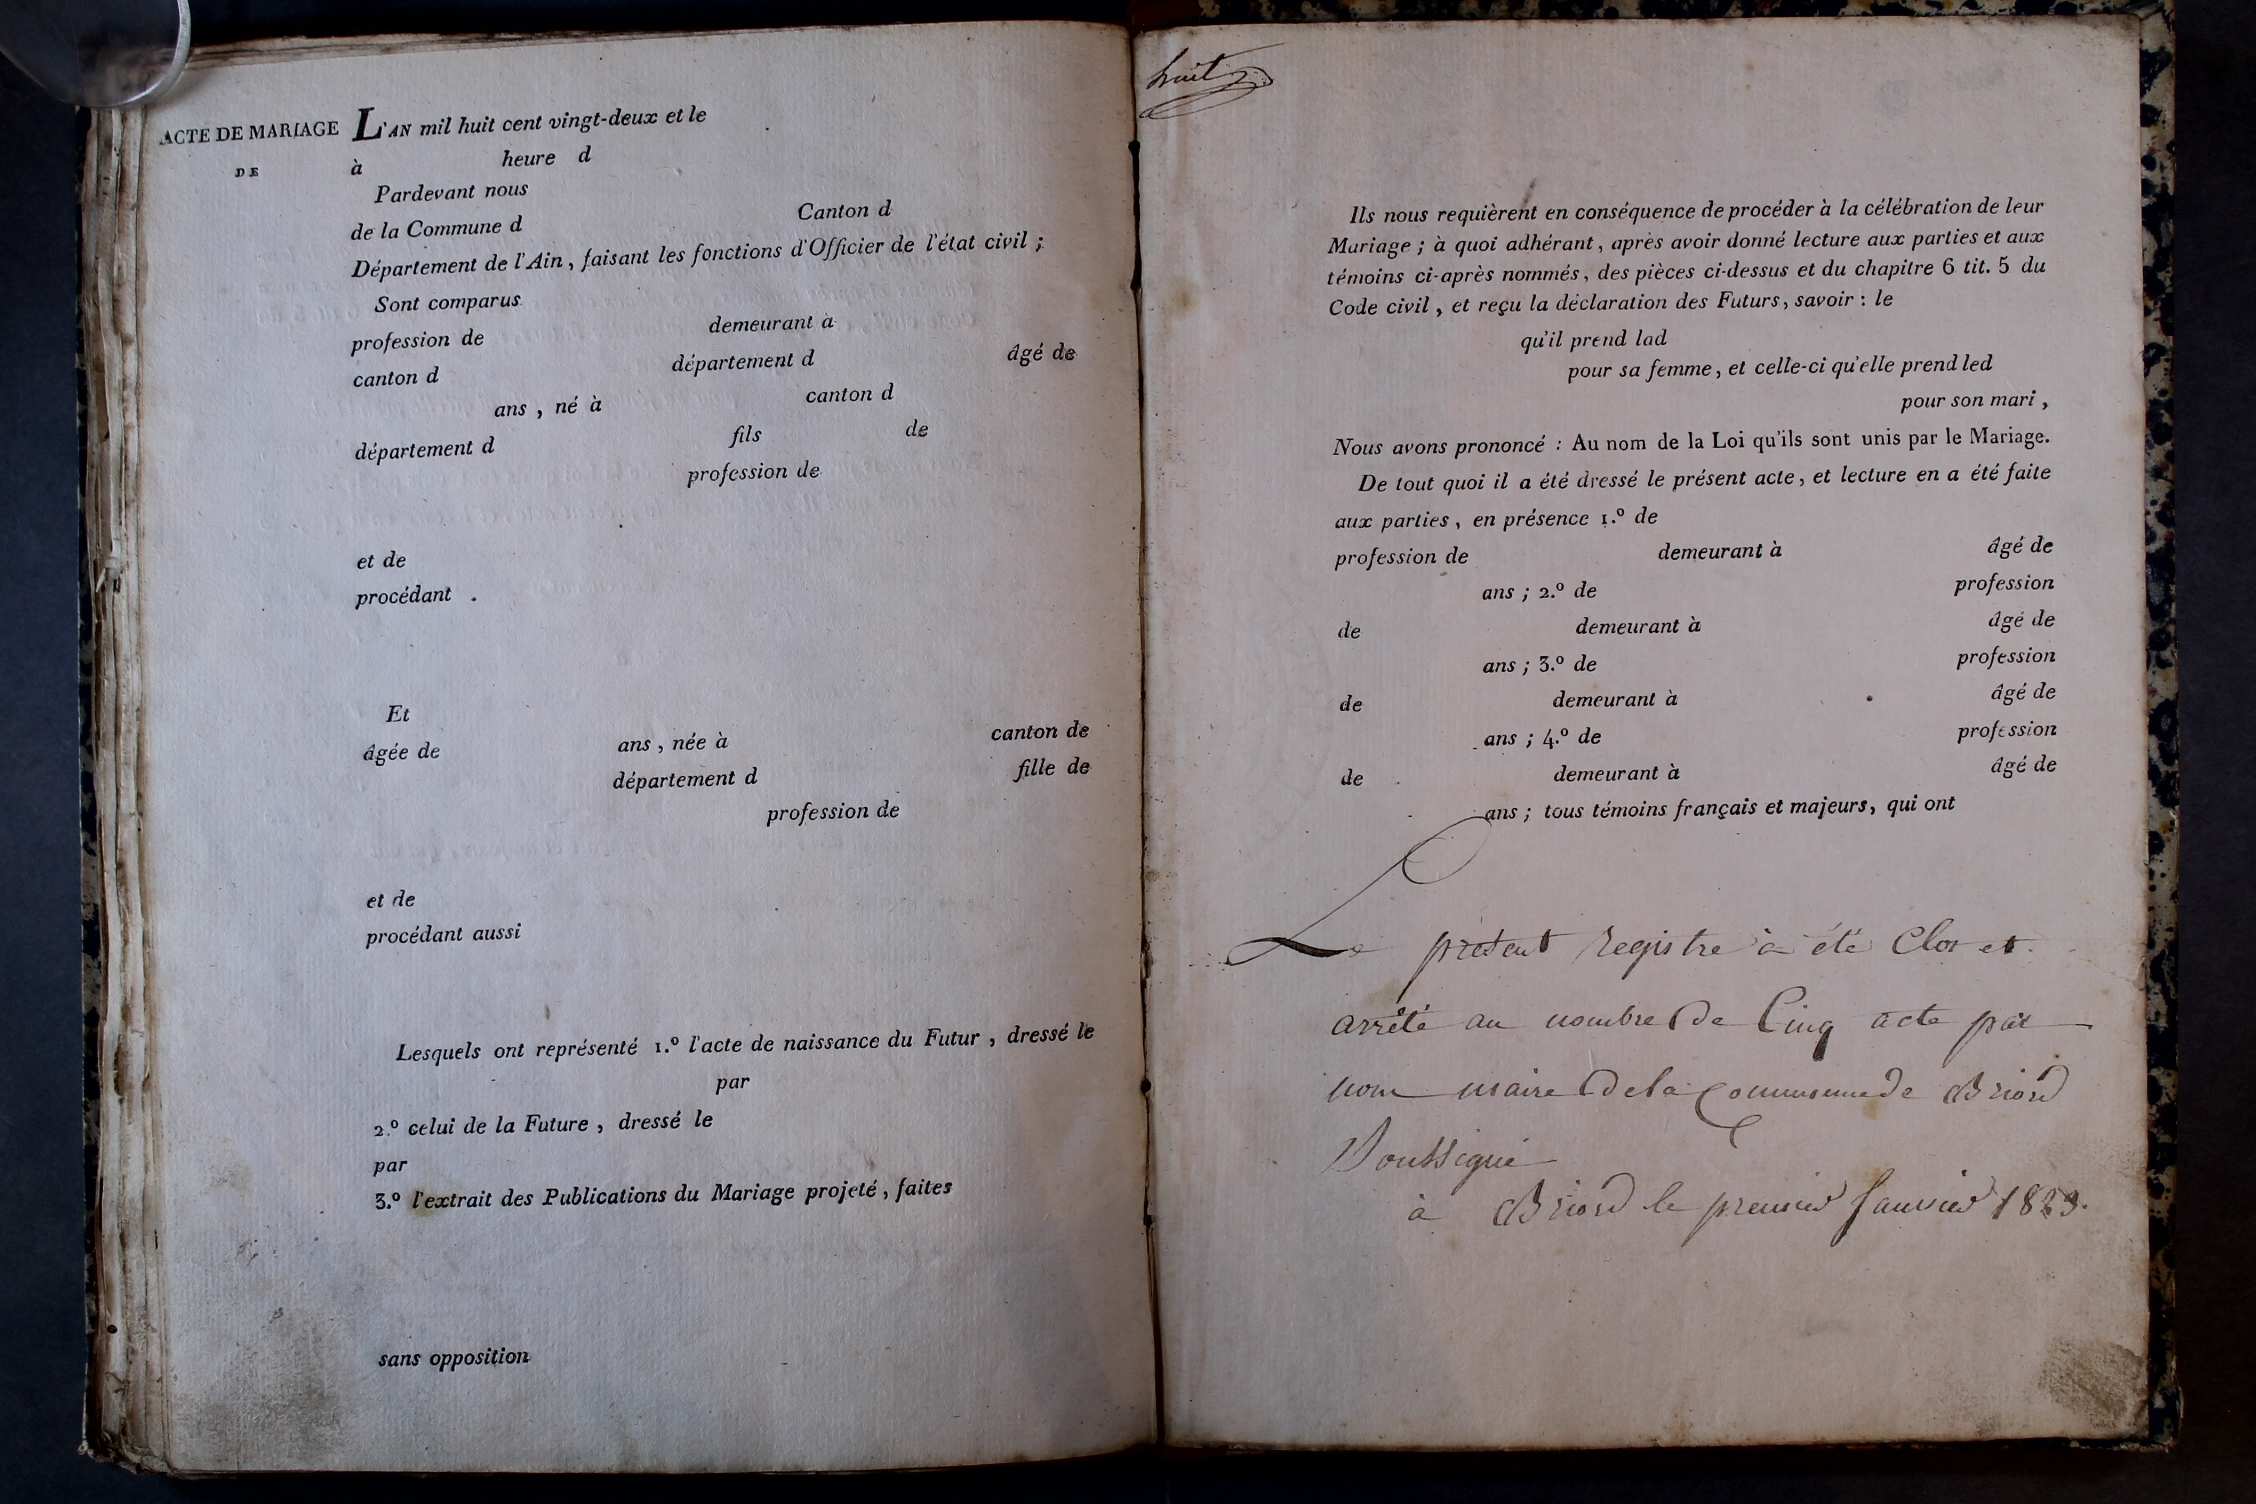 ACTE DE MARIAGE
DE
L'AN mil huit cent vingt-deux et le
à heure d
Pardevant nous
de la Commune d Canton d
Département de l'Ain, faisant les fonctions d'Officier de l'état civil ;
Sont comparus
profession de demeurant à
canton d département d âgé de
ans , né à canton d
département d fils de
profession de
et de
procédant
Et
âgée de ans , née à canton de
département d fille de
profession de
et de
procédant aussi
Lesquels ont représenté 1.º l'acte de naissance du Futur , dressé le
par
2.º celui de la Future , dressé le
par
3.º l'extrait des Publications du Mariage projeté, faites
sans opposition
huit
Ils nous requièrent en conséquence de procéder à la célébration de leur
Mariage ; à quoi adhérant, après avoir donné lecture aux parties et aux
témoins ci-après nommés, des pièces ci-dessus et du chapitre 6 tit. 5 du
Code civil , et reçu la déclaration des Futurs, savoir : le
qu'il prend lad
pour sa femme, et celle-ci qu'elle prend led
pour son mari ,
Nous avons prononcé : Au nom de la Loi qu'ils sont unis par le Mariage.
De tout quoi il a été dressé le présent acte, et lecture en a été faite
aux parties, en présence 1.º de
profession de demeurant à âgé de
ans ; 2.º de profession
de demeurant à âgé de
ans ; 3.º de profession
de demeurant à âgé de
ans ; 4.º de profession
de demeurant à âgé de
ans ; tous témoins français et majeurs, qui ont
Le présent registre à été Clos et
arrêté au nombre de Cinq acte par
nous maire de la Commune de Briord
Soussigné
à Briord le premier Janvier 1823.